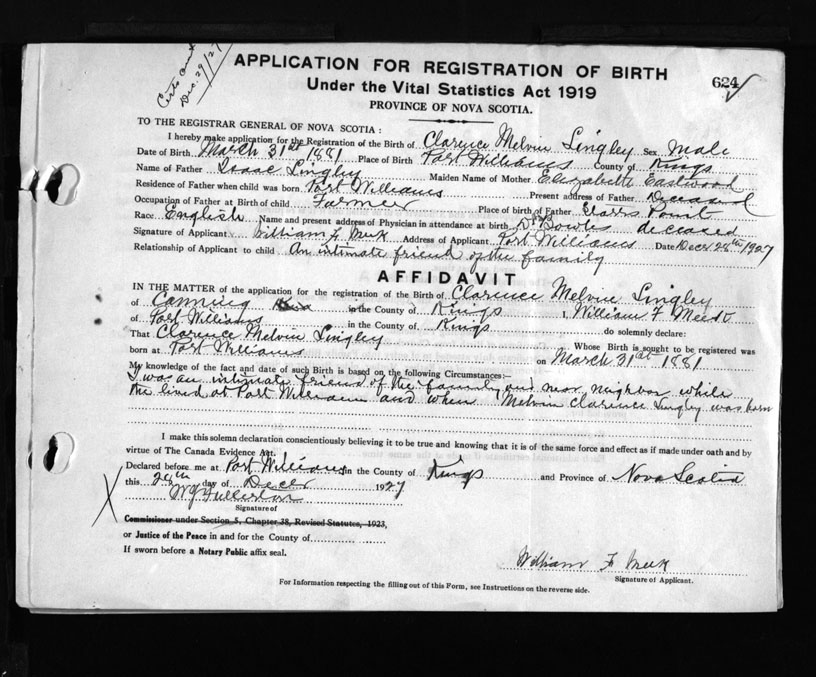 Certs Dec. 29/27
APPLICATION FOR REGISTRATION OF BIRTH
624
Under the Vital Statistics Act 1919
PROVINCE OF NOVA SCOTIA.
TO THE REGISTRAR GENERAL OF NOVA SCOTIA:
I hereby make application for the Registration of the Birth of Clarence Melvin Lingley Sex Male
Date of Birth March 31st 1881 Place of Birth Port Williams County of Kings
Name of Father Isaac Lingley Maiden Name of Mother Elizabeth Eastwood
Residence of Father when child was born Port Williams Present address of Father Deceased
Occupation of Father at Birth of child Farmer Place of birth of Father Clarks Point
Race English Name and present address of Physician in attendance at birth Dr Bowles deceased
Signature of Applicant William F Meek Address of Applicant Port Williams Date Decr 28th 1927
Relationship of Applicant to child An intimate friend of the family
AFFIDAVIT
IN THE MATTER of the application for the registration of the Birth of Clarence Melvin Lingley
of Canning in the County of Kings I, William F Meek
of Port Williams in the County of Kings do solemnly declare:
That Clarence Melvin Lingley Whose Birth is sought to be registered was
born at Port Williams on March 31st 1881
My knowledge of the fact and date of such Birth is based on the following Circumstances:—
I was an intimate friend of the family and near neighbor while
the lived at Port Williams and when Melvin Clarence Lingley was born
I make this solemn declaration conscientiously believing it to be true and knowing that it is of the same force and effect as if made under oath and by
virtue of The Canada Evidence Act.
Declared before me at Port Williams in the County of Kings and Province of Nova Scotia
this 28th day of Decr 1927
W J Fullerton
Signature of
Commissioner under Section 5, Chapter 38, Revised Statutes, 1923,
or Justice of the Peace in and for the County of
If sworn before a Notary Public affix seal.
William F Meek
Signature of Applicant.
For Information respecting the filling out of this Form, see Instructions on the reverse side.